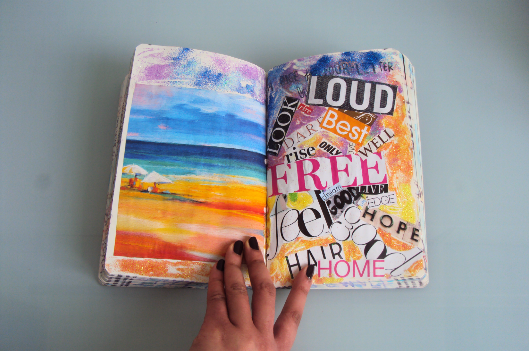 LOUD
LOOK
Best
DARE
WELL
rise
ONLY
FREE
GOOD
LIVE
EDGE
feel
HOPE
good
HAIR
HOME